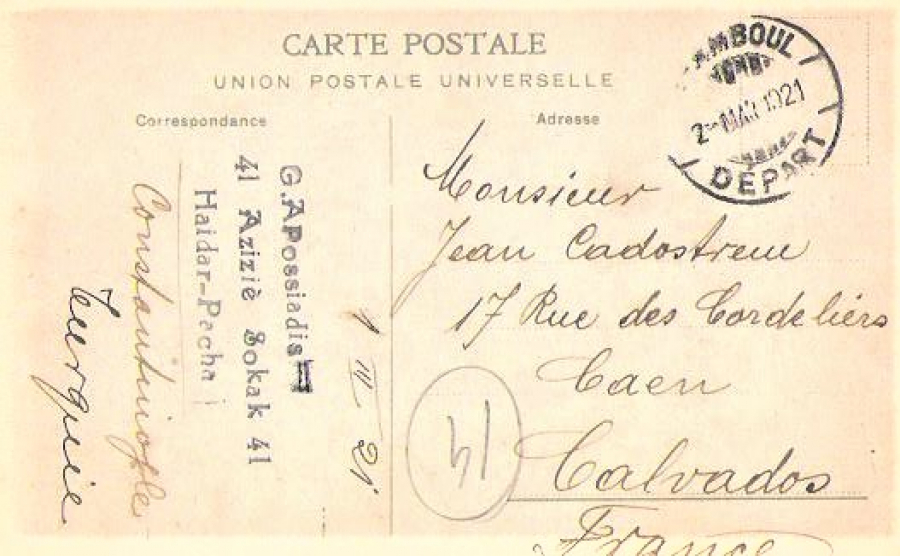 CARTE POSTALE
UNION POSTALE UNIVERSELLE
Correspondance
Adresse
AMBOUL
2 - MAR 1921
DÉPART
G. APossiadis
41 Aziziè Sokak 41
Haidar-Pacha
Constantinople
Turquie
1 III 21
Monsieur
Jean Cadostrem
17 Rue des Cordeliers
Caen
Calvados
France
41